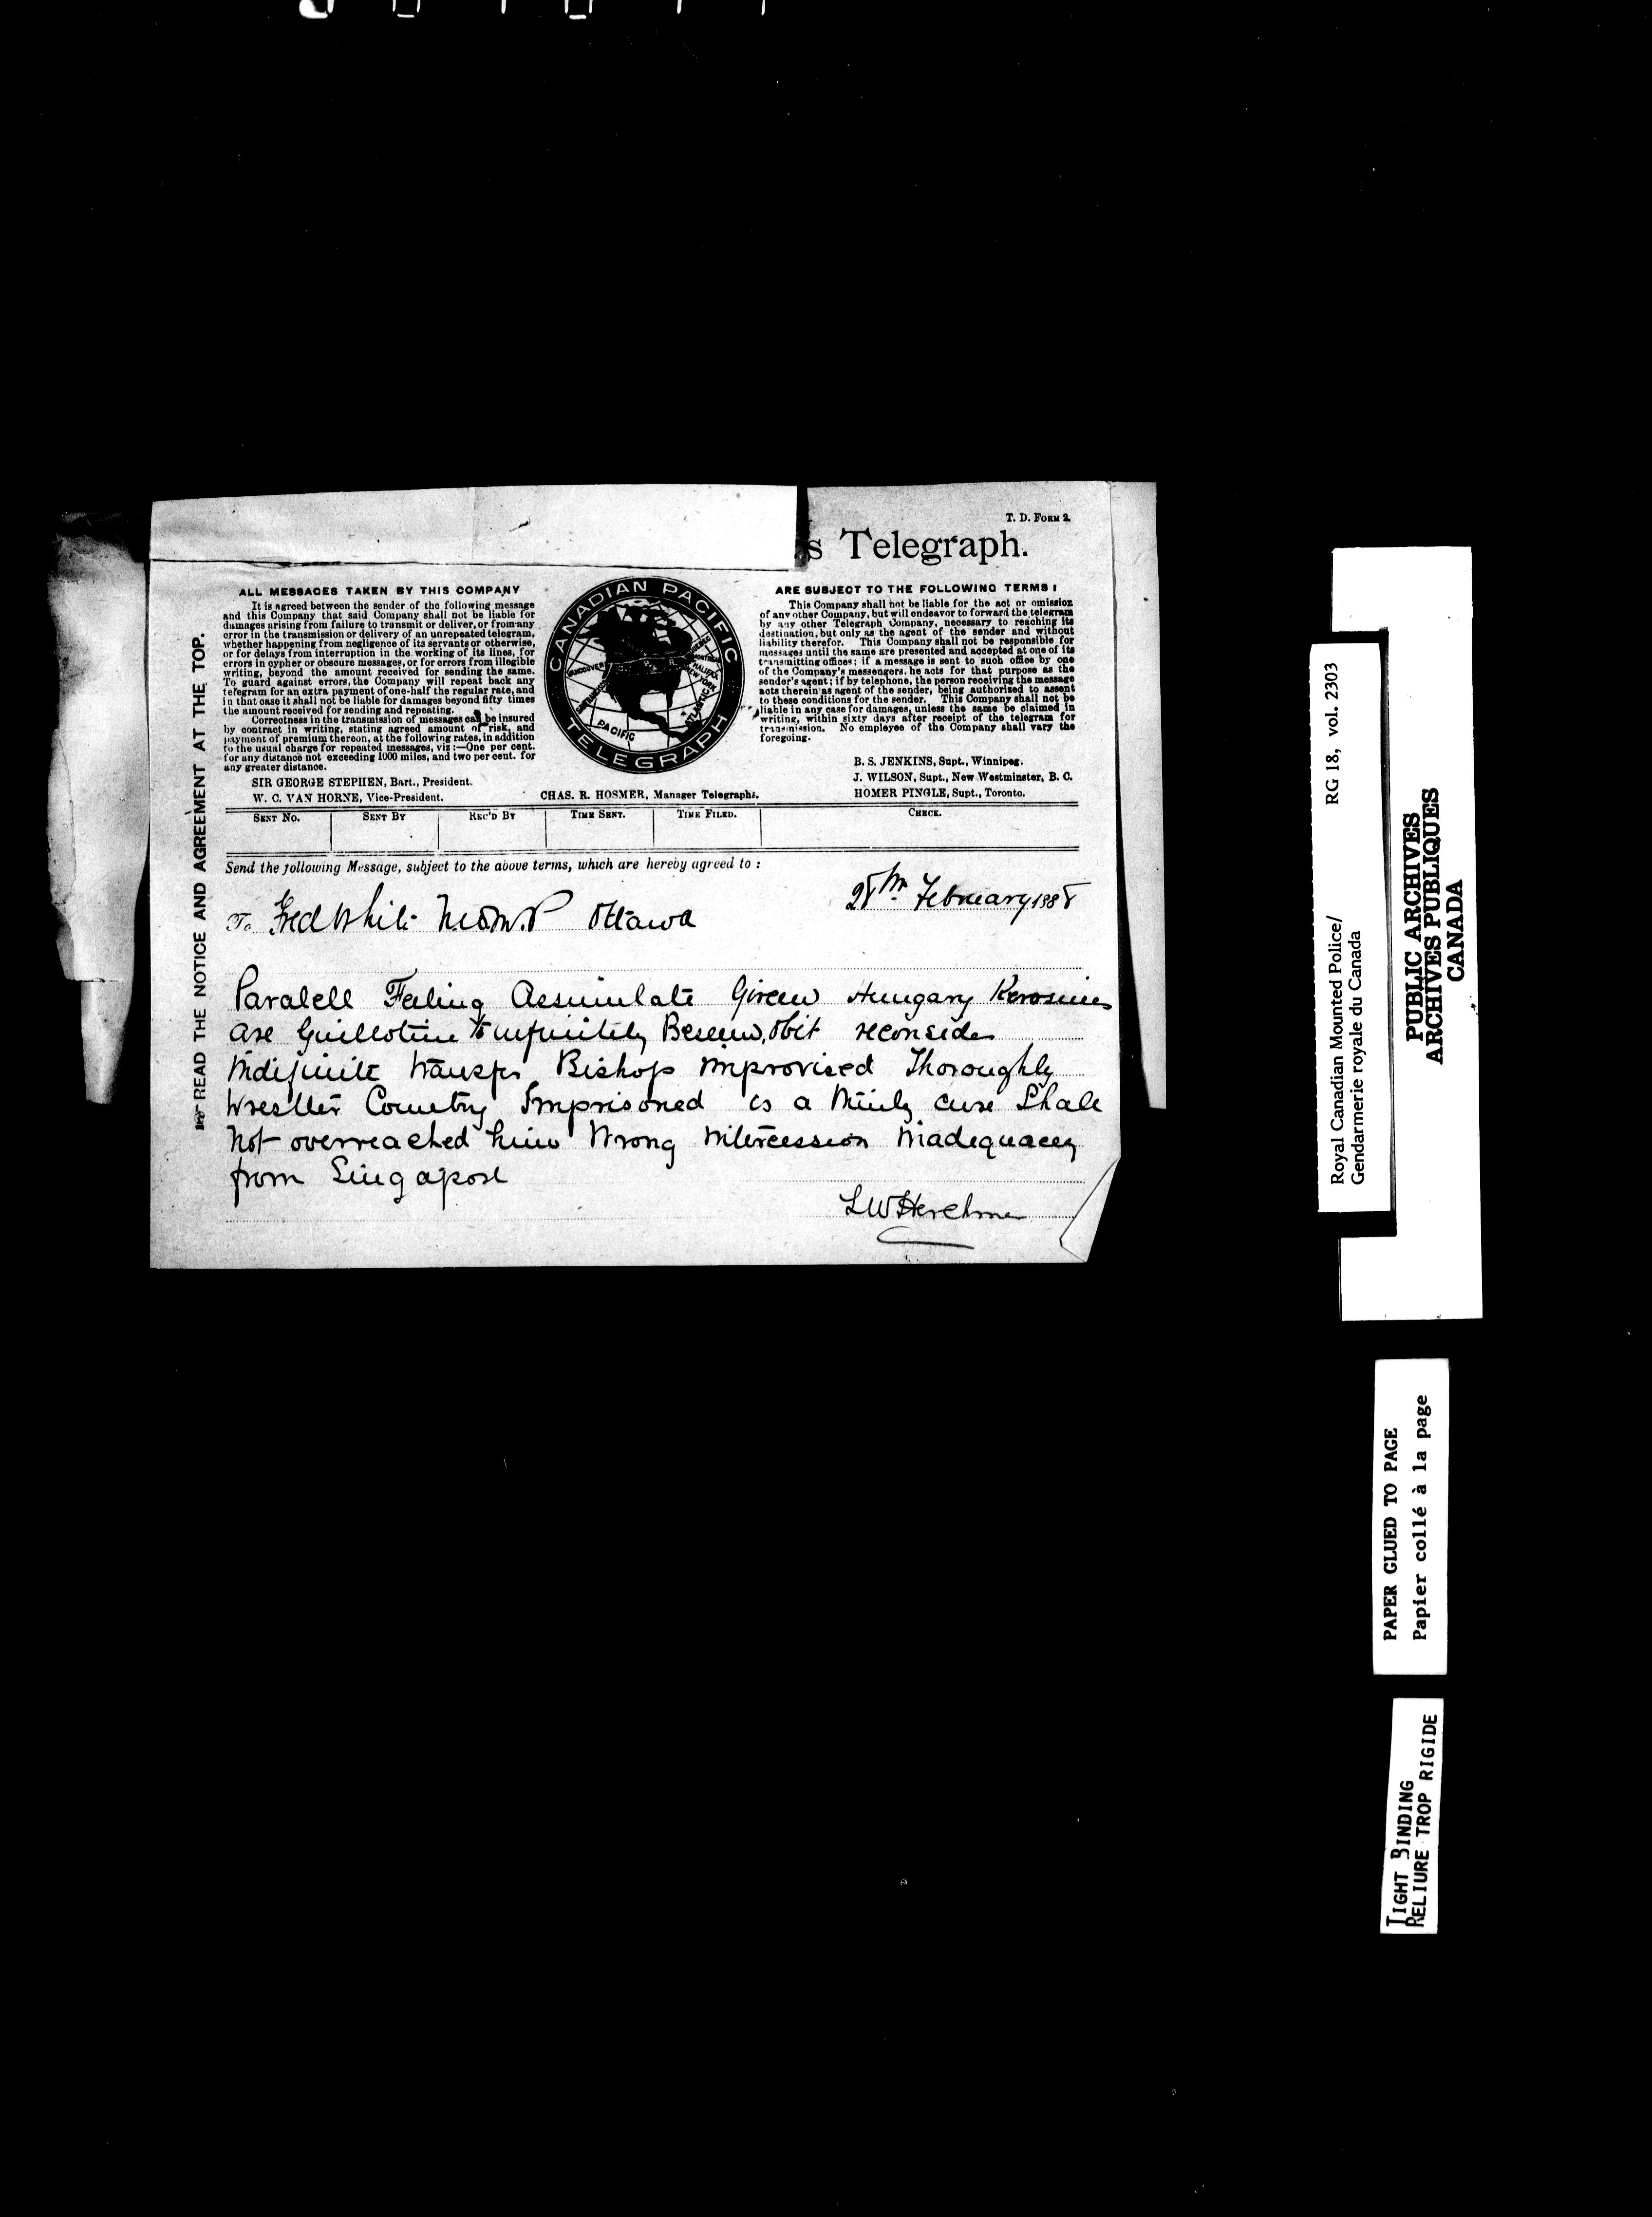 T. D. FORM 2.
s Telegraph.
ALL MESSAGES TAKEN BY THIS COMPANY
It is agreed between the sender of the following message
and this Company that said Company shall not be liable for
damages arising from failure to transmit or deliver, or from any
error in the transmission or delivery of an unrepeated telegram,
whether happening from negligence of its servants or otherwise,
or for delays from interruption in the working of its lines, for
errors in cypher or obscure messages, or for errors from illegible
writing, beyond the amount received for sending the same.
To guard against errors, the Company will repeat back any
telegram for an extra payment of one-half the regular rate, and
in that case it shall not be liable for damages beyond fifty times
the amount received for sending and repeating.
Correctness in the transmission of messages can be insured
by contract in writing, stating agreed amount of risk, and
payment of premium thereon, at the following rates, in addition
to the usual charge for repeated messages, viz:—One per cent.
for any distance not exceeding 1000 miles, and two per cent. for
any greater distance.
SIR GEORGE STEPHEN, Bart., President.
W. C. VAN HORNE, Vice-President.
CANADIAN PACIFIC
VANCOUVER
HALIFAX
NEW YORK
ATLANTIC
PACIFIC
TELEGRAPH
CHAS. R. HOSMER, Manager Telegraphs.
ARE SUBJECT TO THE FOLLOWING TERMS:
This Company shall not be liable for the act or omission
of any other Company, but will endeavor to forward the telegram
by any other Telegraph Company, necessary to reaching its
destination, but only as the agent of the sender and without
liability therefor. This Company shall not be responsible for
messages until the same are presented and accepted at one of its
transmitting offices; if a message is sent to such office by one
of the Company's messengers, he acts for that purpose as the
sender's agent; if by telephone, the person receiving the message
acts therein as agent of the sender, being authorised to assent
to these conditions for the sender. This Company shall not be
liable in any case for damages, unless the same be claimed in
writing, within sixty days after receipt of the telegram for
transmission. No employee of the Company shall vary the
foregoing.
B. S. JENKINS, Supt., Winnipeg.
J. WILSON, Supt., New Westminster, B. C.
HOMER PINGLE, Supt., Toronto.
SENT NO. SENT BY REC'D BY TIME SENT. TIME FILED. CHECK.
Send the following Message, subject to the above terms, which are hereby agreed to:
28th February 1888
To Fred White N.W.M.P Ottawa
Paralell Feeling Assimulate Hungary
are Guillotine infinitely obit reconsider
indifinite transfer Bishop improvised Thoroughly
Wrestler Country Imprisoned is a cure Shall
not overreached him Wrong intercession inadequacy
from Singapore
LW Herchmer
READ THE NOTICE AND AGREEMENT AT THE TOP.
Royal Canadian Mounted Police/ RG 18, vol. 2303
Gendarmerie royale du Canada
PUBLIC ARCHIVES
ARCHIVES PUBLIQUES
CANADA
PAPER GLUED TO PAGE
Papier collé à la page
TIGHT BINDING
RELIURE TROP RIGIDE